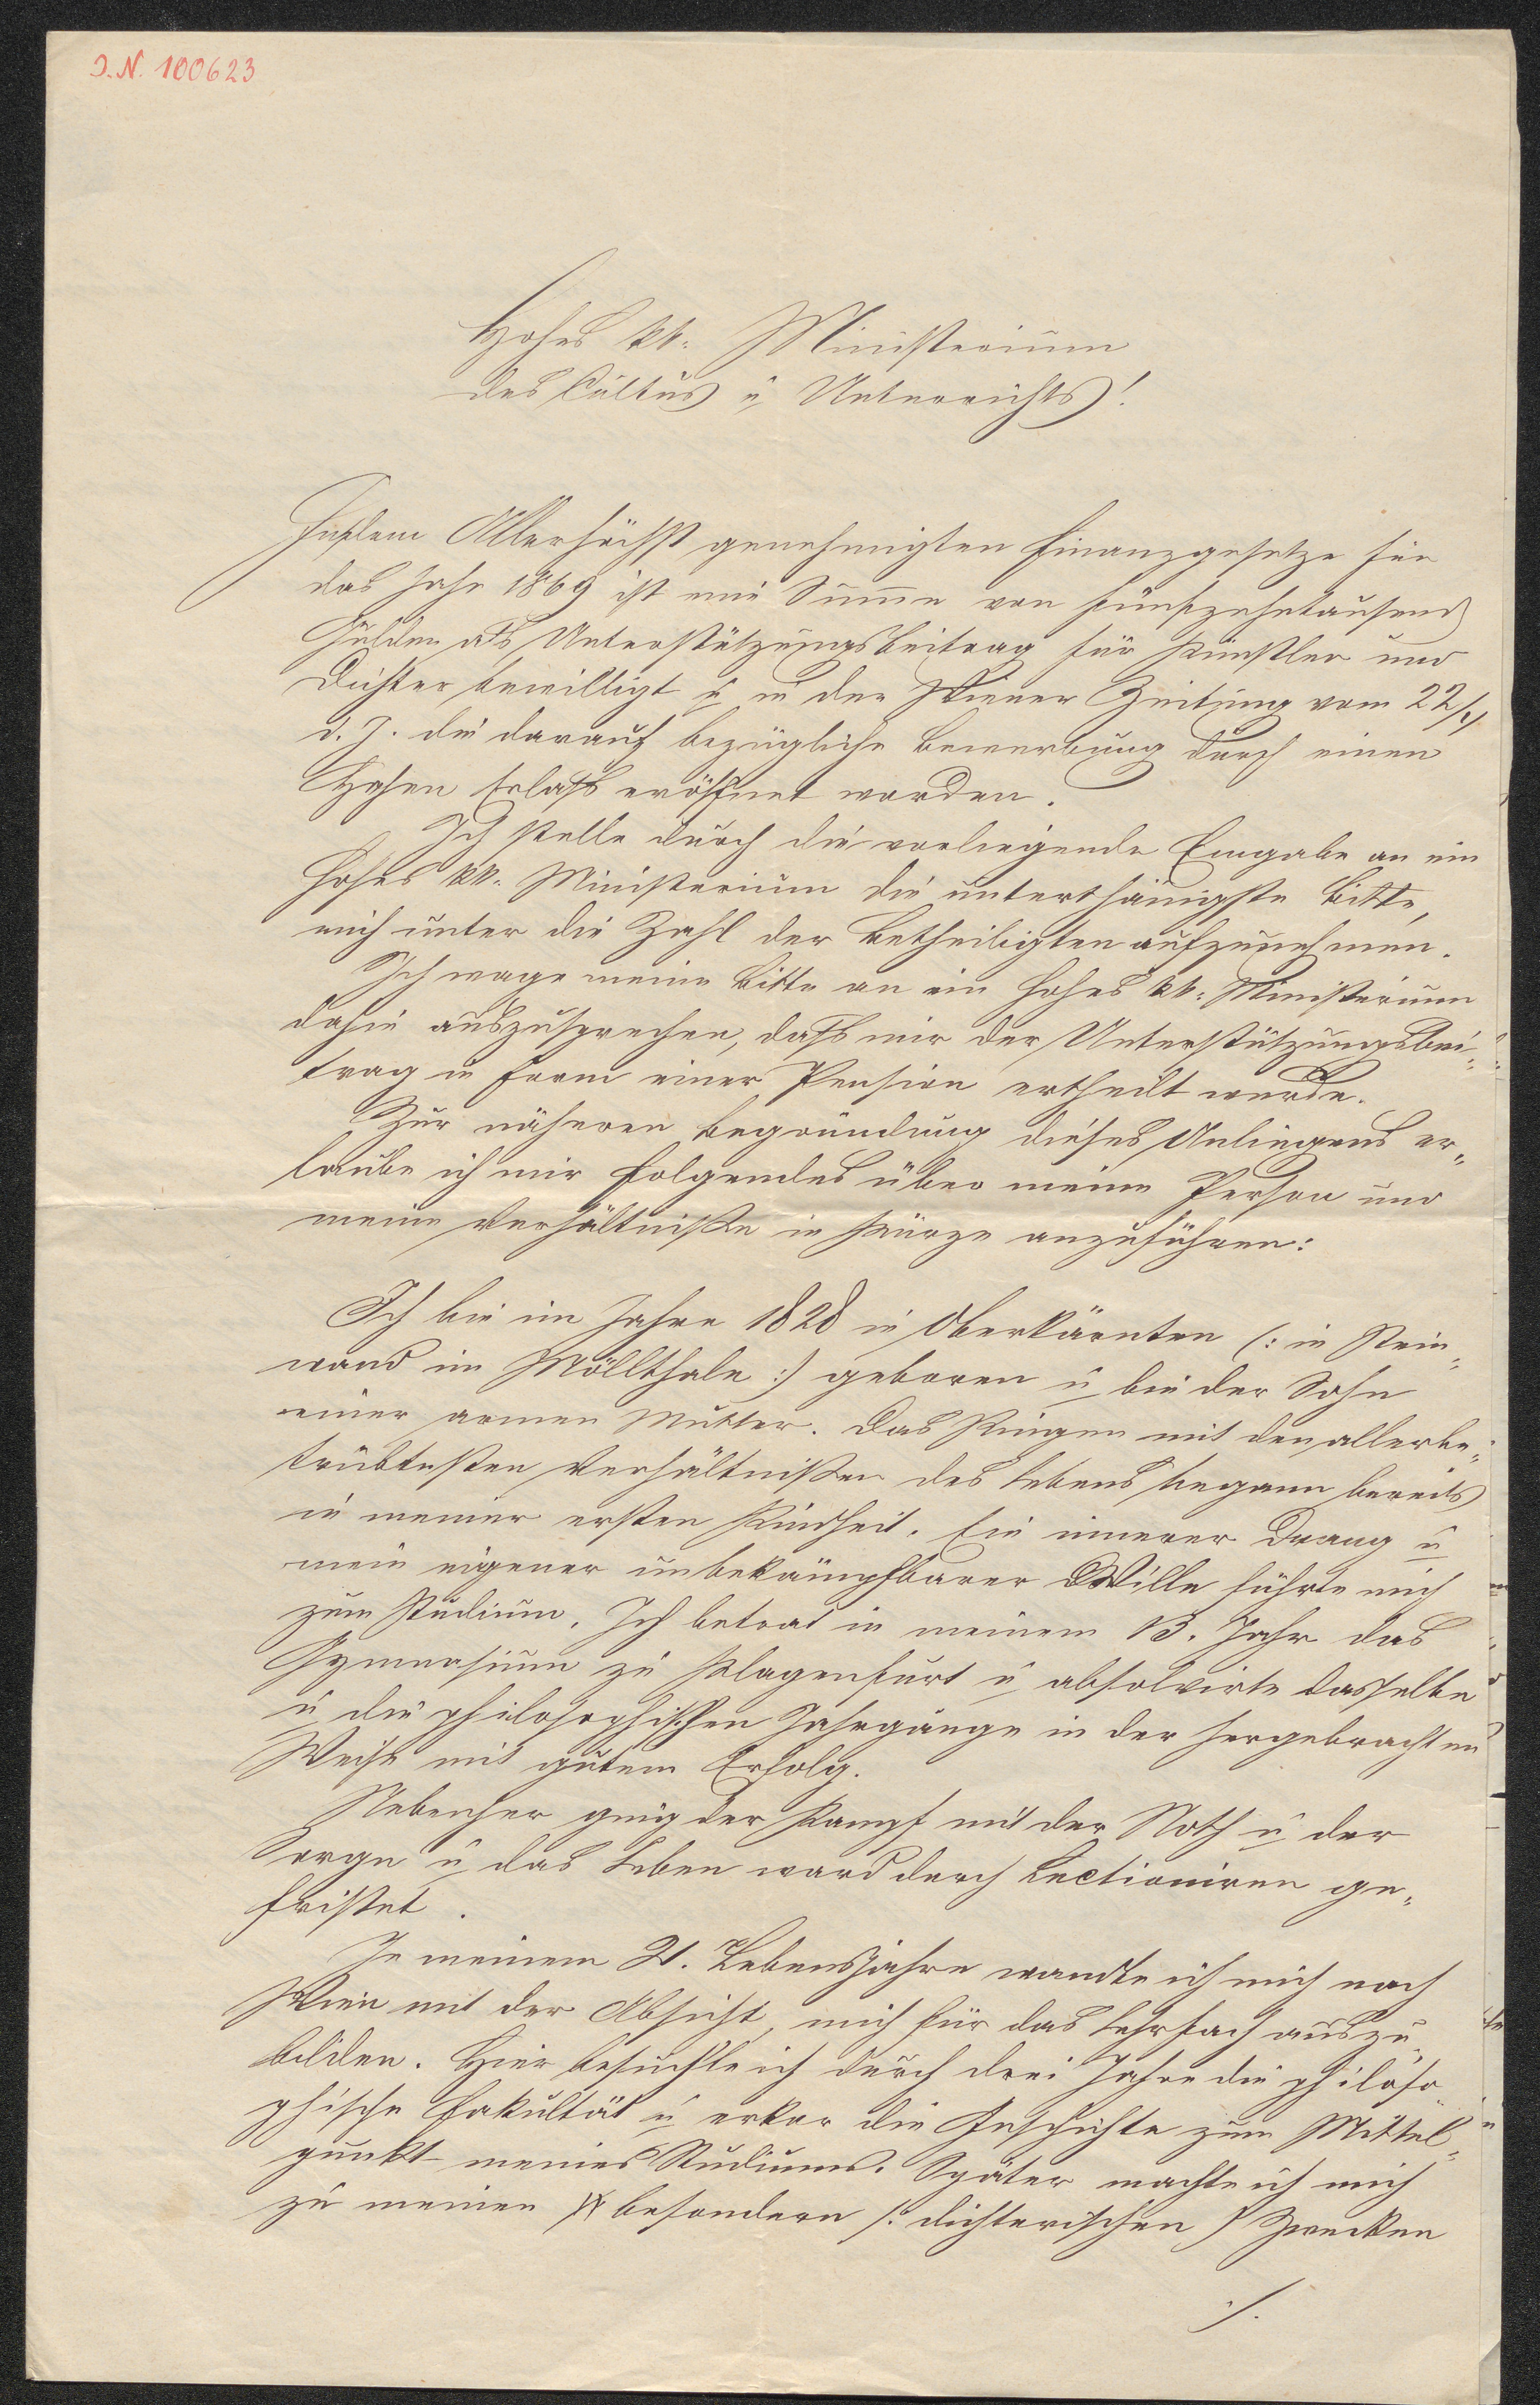 I.N. 100623
Hohes kk. Ministerium
des Cultus u Unterrichts!
In dem Allerhöchst genehmigten Finanzgesetze für
das Jahr 1869 ist eine Summe von fünfzehntausend
Gulden als Unterstützungsbeitrag für Künstler und
Dichter bewilligt u in der Wiener Zeitung vom 22/
d. J. die darauf bezügliche Bewerbung durch einen
Hohen Erlaß eröffnet worden.
Ich stelle durch die vorliegende Eingabe an ein
Hohes kk. Ministerium die unterthänigste Bitte,
mich unter die Zahl der Betheiligten aufzunehmen.
Ich wage meine Bitte an ein hohes kk. Ministerium
dahin auszusprechen, daß mir der Unterstützungsbei-
trag in Form einer Pension ertheilt werde.
Zur näheren Begründung dieses Anliegens er-
laube ich mir Folgendes über meine Person und
meine Verhältniße in Kürze anzuführen:
Ich bin im Jahre 1828 in Oberkärnten (: in Stein-
wand im Möllthale :) geboren u bin der Sohn
einer armen Mutter. Das Ringen mit den allerbe-
trübtesten Verhältnißen des Lebens begann bereits
in meiner ersten Kindheit. Ein innerer Drang u
mein eigener unbekämpfbarer Wille führte mich
zum Studium. Ich betrat in meinem 13. Jahr das
Gymnasium zu Klagenfurt u absolvirte dasselbe
u die philosophischen Jahrgänge in der hergebrachten
Weise mit gutem Erfolg.
Nebenher ging der Kampf mit der Noth u der
Sorge u das Leben ward durch Lectioniren ge-
fristet.
In meinem 21. Lebensjahre wandte ich mich nach
Wien mit der Absicht, mich für das Lehrfach auszu-
bilden. Hier besuchte ich durch drei Jahre die philoso-
phische Fakultät u erkor die Geschichte zum Mittel-
punkt meines Studiums. Später machte ich mich
zu meinen besondern (: dichterischen :) Zwecken
./.